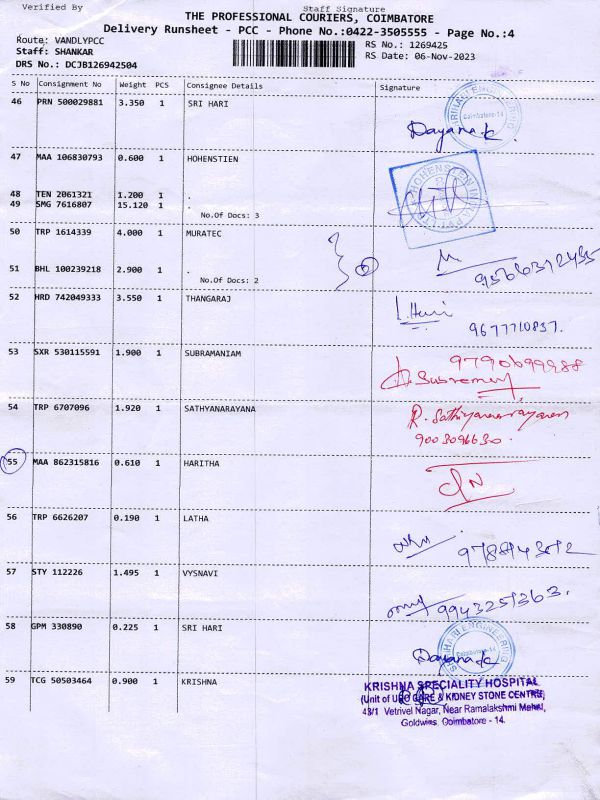 Verified By
Staff Signature
THE PROFESSIONAL COURIERS, COIMBATORE
Delivery Runsheet - PCC - Phone No.:0422-3505555 - Page No.:4
Route: VANDLYPCC
RS No.: 1269425
Staff: SHANKAR
RS Date: 06-Nov-2023
DRS No.: DCJB126942504
S No Consignment No Weight PCS Consignee Details Signature
46 PRN 500029881 3.350 1 SRI HARI
SRIHARI ENGINEERING
Coimbatore-14
Dayana
47 MAA 106830793 0.600 1 HOHENSTIEN
HOHENSTEIN
48 TEN 2061321 1.200 1 .
49 SMG 7616807 15.120 1 .
No.Of Docs: 3
50 TRP 1614339 4.000 1 MURATEC
2
51 BHL 100239218 2.900 1 .
No.Of Docs: 2
52 HRD 742049333 3.550 1 THANGARAJ
9677710837.
53 SXR 530115591 1.900 1 SUBRAMANIAM
9790699988
54 TRP 6707096 1.920 1 SATHYANARAYANA
R. Sathiyanarayanan
9003096630.
55 MAA 862315816 0.610 1 HARITHA
56 TRP 6626207 0.190 1 LATHA
57 STY 112226 1.495 1 VYSNAVI
9943251363.
58 GPM 330890 0.225 1 SRI HARI
SRIHARI ENGINEERING
Coimbatore-14
Dayana
59 TCG 50503464 0.900 1 KRISHNA
KRISHNA SPECIALITY HOSPITAL
(Unit of URO CARE & KIDNEY STONE CENTRE)
43/1 Vetrivel Nagar, Near Ramalakshmi Mahal,
Goldwins, Coimbatore - 14.